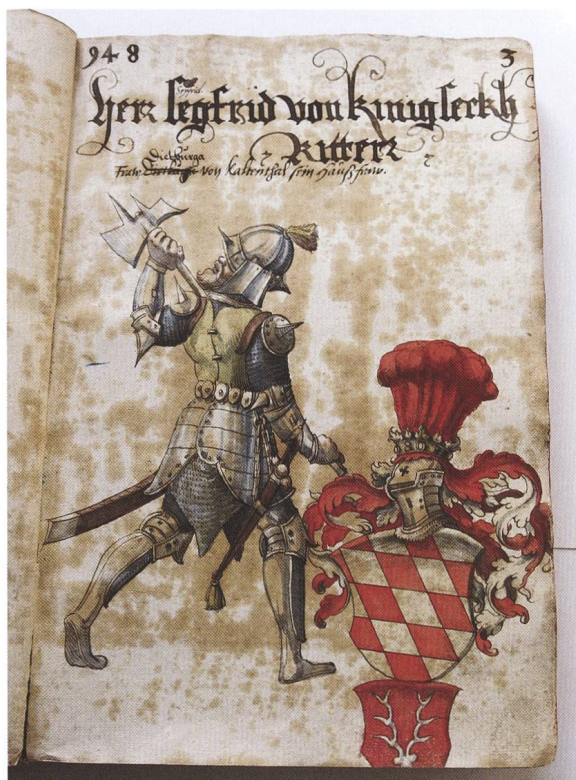 948 3
Herr Segfrid von Kinigseckh
Ritterr
von Kaltenthal sein Haußfraw.